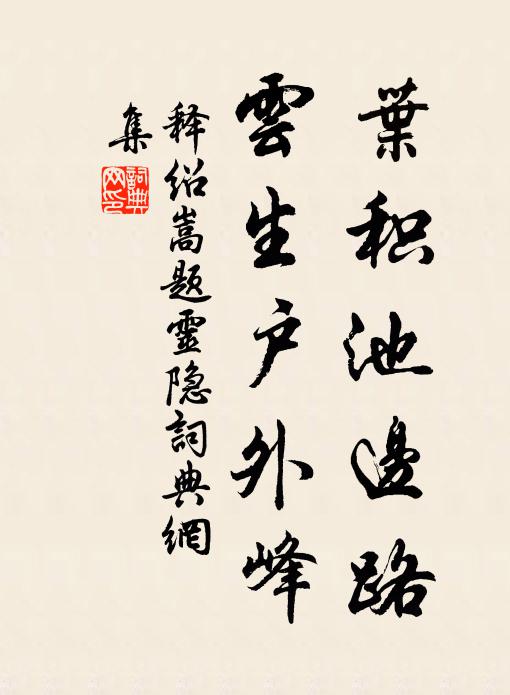 葉积池邊路
雲生户外峰
释绍嵩题靈隐詞典網
集
詞典网印